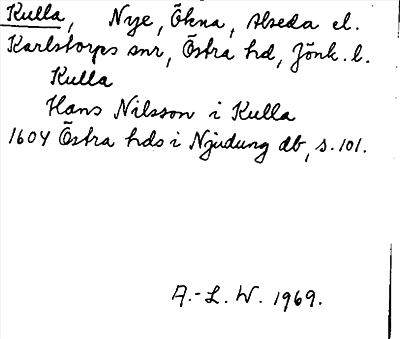 Kulla, Nye, Ökna, Alseda el.
Karlstorps snr, Östra hd, Jönk. l.
Kulla
Hans Nilsson i Kulla
1604 Östra hds i Njudung db, s. 101.
A.-L. W. 1969.